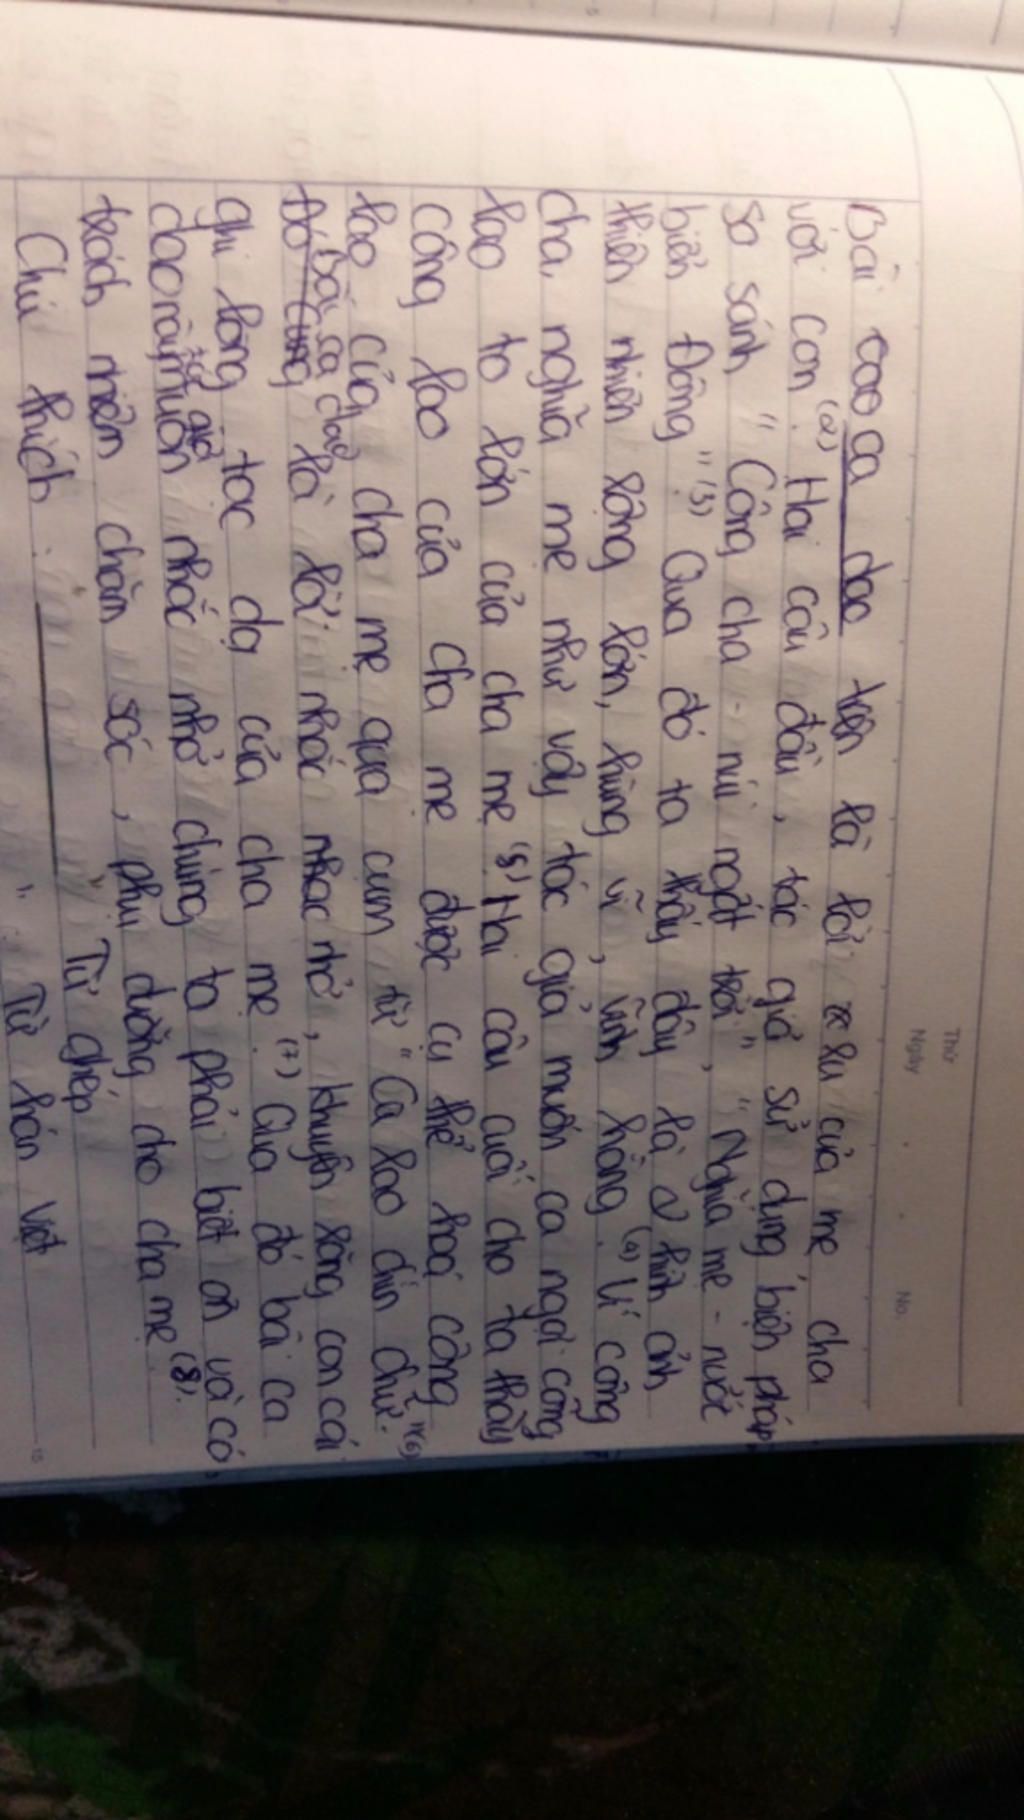 Thứ
Ngày No.
Bài ca dao trên là lời ru của mẹ cha
với con.(2) Hai câu đầu, tác giả sử dụng biện pháp
so sánh "Công cha - núi ngất trời", "Nghĩa mẹ - nước
biển Đông"(3) Qua đó ta thấy đây là hình ảnh
thiên nhiên rộng lớn, hùng vĩ, vĩnh hằng.(4) Ví công
cha, nghĩa mẹ như vậy tác giả muốn ca ngợi công
lao to lớn của cha mẹ.(5) Hai câu cuối cho ta thấy
công lao của cha mẹ được cụ thể hoá công
lao của cha mẹ qua cụm từ "Cù lao chín chữ."(6)
Bài ca dao
Đó cũng là lời nhắc nhở, khuyên răng con cái
ghi lòng tạc dạ của cha mẹ.(7) Qua đó bài ca
dao này tác giả muốn nhắc nhở chúng ta phải biết ơn và có
trách nhiệm chăm sóc, phụ dưỡng cho cha mẹ.(8).
Chú thích: Từ ghép
Từ hán việt